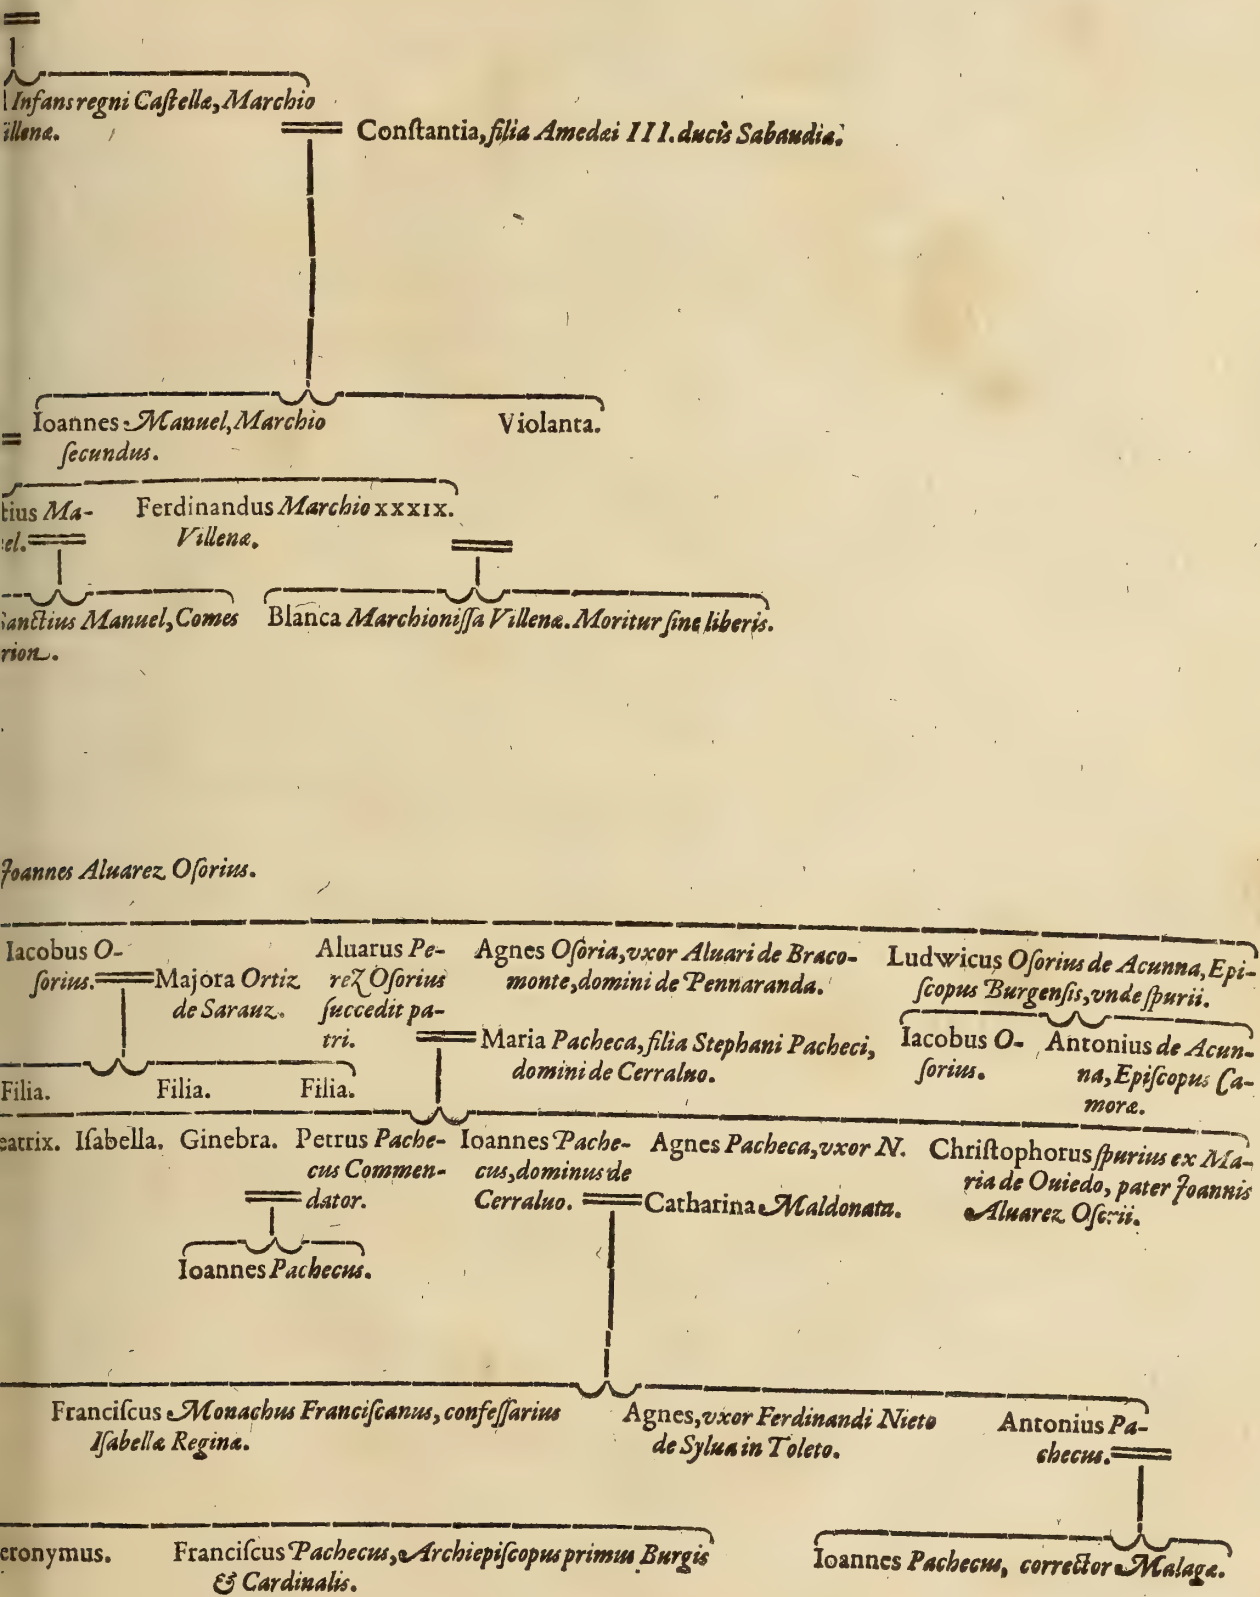 Infans regni Caſtellæ, Marchio
illenæ.
Conſtantia, filia Amedæi III. ducis Sabaudiæ.
Ioannes Manuel, Marchio
ſecundus.
Violanta.
tius Ma-
el.
Ferdinandus Marchio XXXIX.
Villenæ.
anctius Manuel, Comes
rion.
Blanca Marchioniſſa Villenæ. Moritur ſine liberis.
Joannes Aluarez Oſorius.
Iacobus O-
ſorius.
Majora Ortiz
de Sarauz.
Aluarus Pe-
rez Oſorius
ſuccedit pa-
tri.
Agnes Oſoria, vxor Aluari de Braco-
monte, domini de Pennaranda.
Ludwicus Oſorius de Acunna, Epi-
ſcopus Burgenſis, vnde ſpurii.
Maria Pacheca, filia Stephani Pacheci,
domini de Cerraluo.
Iacobus O-
ſorius.
Antonius de Acun-
na, Epiſcopus Ca-
moræ.
Filia. Filia. Filia.
eatrix. Iſabella. Ginebra.
Petrus Pache-
cus Commen-
dator.
Ioannes Pache-
cus, dominus de
Cerraluo.
Catharina Maldonata.
Agnes Pacheca, vxor N.
Chriſtophorus ſpurius ex Ma-
ria de Ouiedo, pater Joannis
Aluarez Oſorii.
Ioannes Pachecus.
Franciſcus Monachus Franciſcanus, confeſſarius
Iſabellæ Reginæ.
Agnes, vxor Ferdinandi Nieto
de Sylua in Toleto.
Antonius Pa-
checus.
eronymus.
Franciſcus Pachecus, Archiepiſcopus primus Burgis
& Cardinalis.
Ioannes Pachecus, corrector Malagæ.